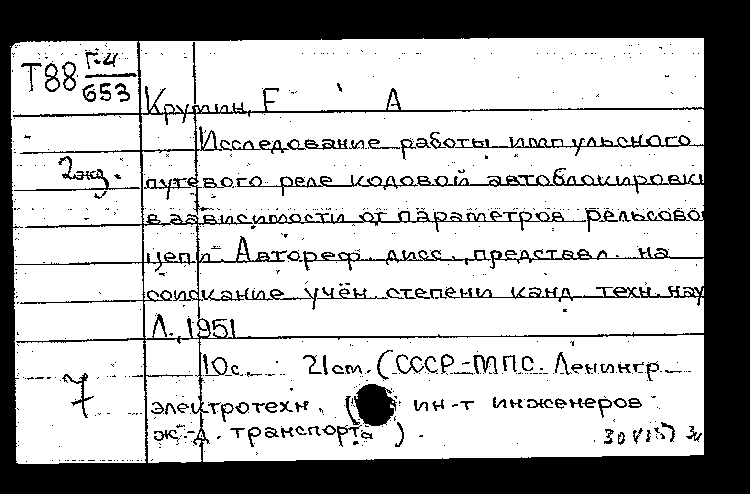 Т88 Г-4
653
Крутин, Е А
Исследование работы импульсного
2 экз. путевого реле кодовой автоблокировки
в зависимости от параметров рельсовой
цепи Автореф. дисс., представл. на
соискание учён. степени канд. техн. нау
Л., 1951
10с. 21см. (СССР-МПС. Ленингр.
7 электротехн. ( ин-т инженеров
ж.-д. транспорта ).